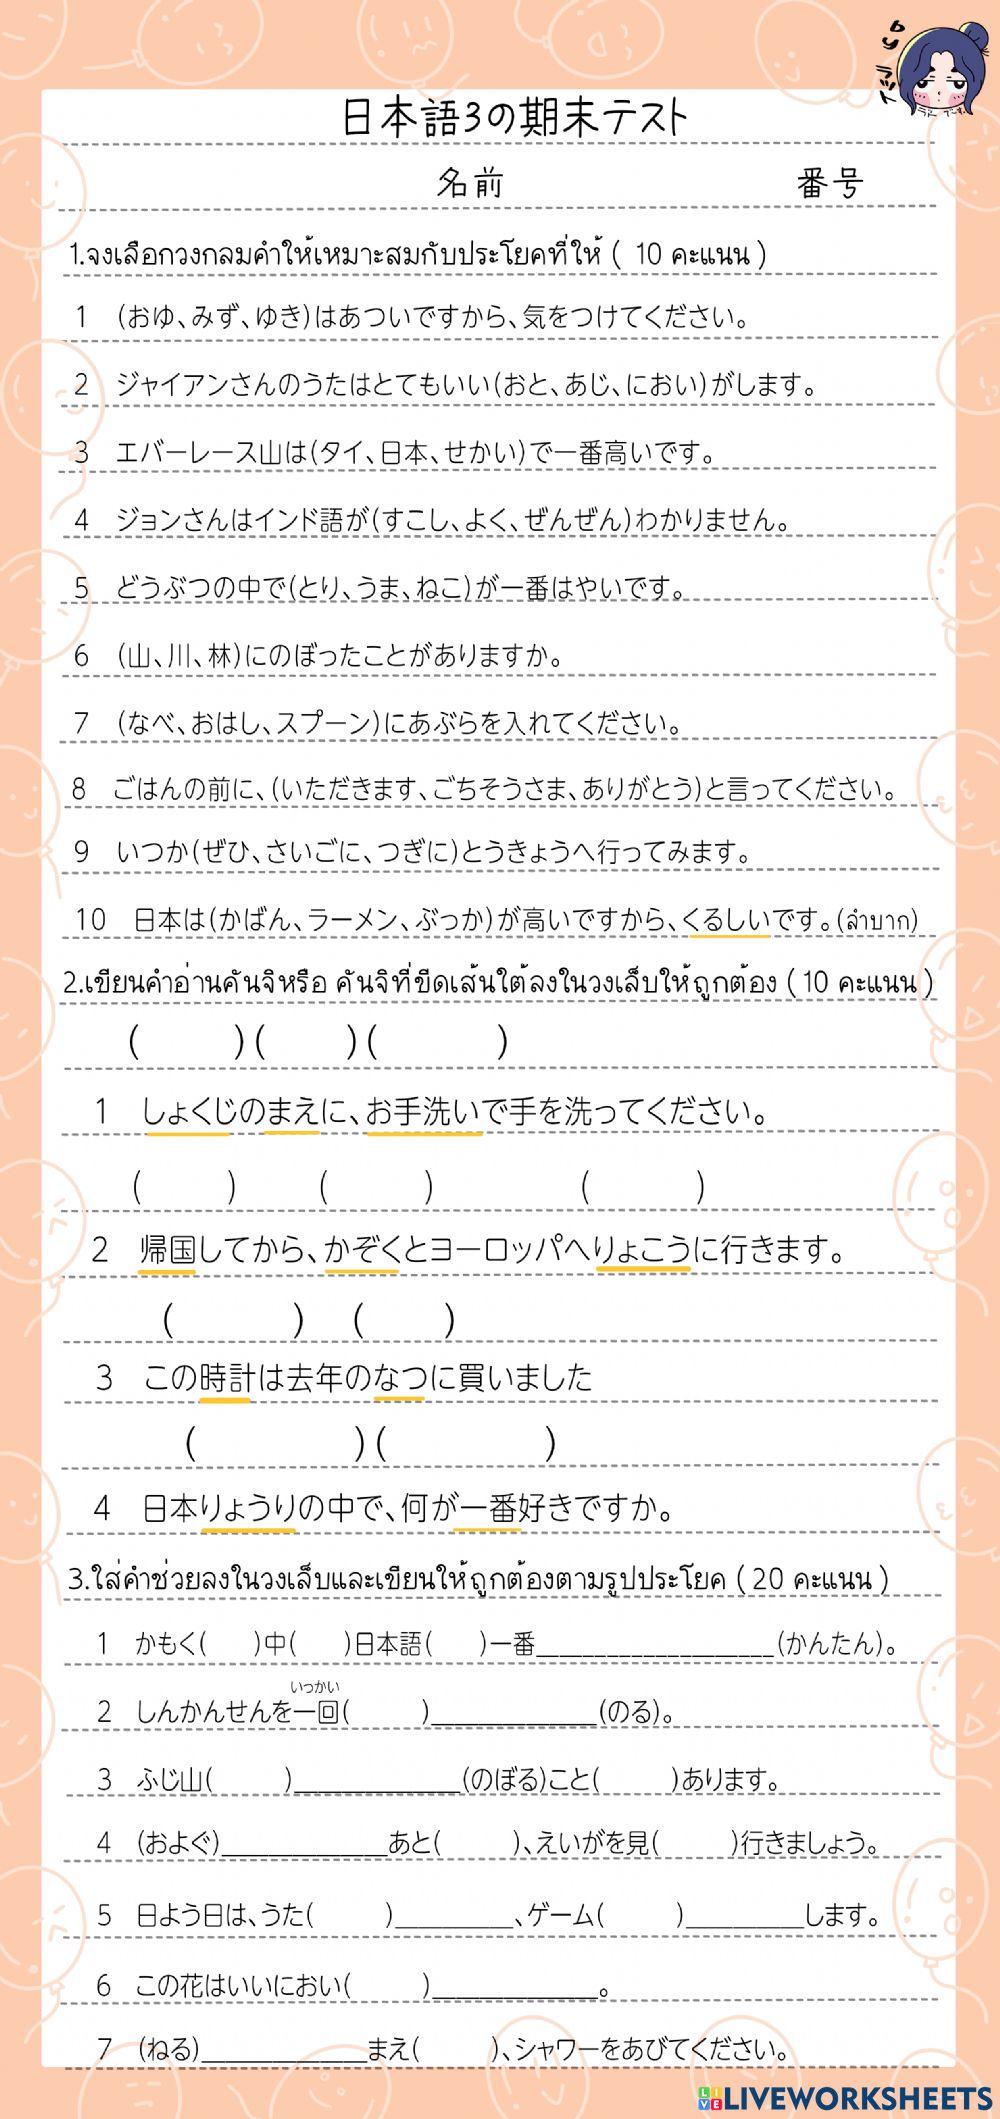 by ラット
日本語3の期末テスト
名前 番号
1.จงเลือกวงกลมคำให้เหมาะสมกับประโยคที่ให้ ( 10 คะแนน )
1 (おゆ、みず、ゆき)はあついですから、気をつけてください。
2 ジャイアンさんのうたはとてもいい(おと、あじ、におい)がします。
3 エバーレース山は(タイ、日本、せかい)で一番高いです。
4 ジョンさんはインド語が(すこし、よく、ぜんぜん)わかりません。
5 どうぶつの中で(とり、うま、ねこ)が一番はやいです。
6 (山、川、林)にのぼったことがありますか。
7 (なべ、おはし、スプーン)にあぶらを入れてください。
8 ごはんの前に、(いただきます、ごちそうさま、ありがとう)と言ってください。
9 いつか(ぜひ、さいごに、つぎに)とうきょうへ行ってみます。
10 日本は(かばん、ラーメン、ぶっか)が高いですから、くるしいです。(ลำบาก)
2.เขียนคำอ่านคันจิหรือ คันจิที่ขีดเส้นใต้ลงในวงเล็บให้ถูกต้อง ( 10 คะแนน )
( ) ( ) ( )
1 しょくじのまえに、お手洗いで手を洗ってください。
( ) ( ) ( )
2 帰国してから、かぞくとヨーロッパへりょこうに行きます。
( ) ( )
3 この時計は去年のなつに買いました
( ) ( )
4 日本りょうりの中で、何が一番好きですか。
3.ใส่คำช่วยลงในวงเล็บและเขียนให้ถูกต้องตามรูปประโยค ( 20 คะแนน )
1 かもく( )中( )日本語( )一番____________________(かんたん)。
いっかい
2 しんかんせんを一回( )______________(のる)。
3 ふじ山( )______________(のぼる)こと( )あります。
4 (およぐ)______________あと( )、えいがを見( )行きましょう。
5 日よう日は、うた( )__________、ゲーム( )__________します。
6 この花はいいにおい( )______________。
7 (ねる)______________まえ( )、シャワーをあびてください。
LIVEWORKSHEETS